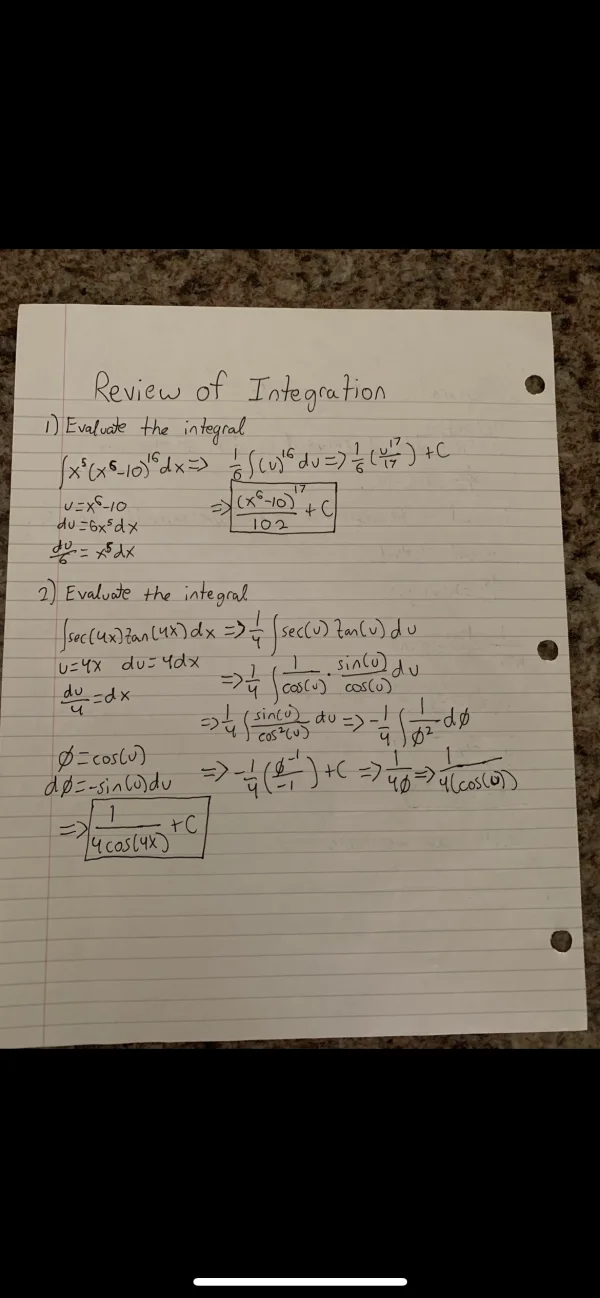 Review of Integration
1) Evaluate the integral
∫x⁵(x⁶-10)¹⁶dx => 1/6 ∫(u)¹⁶du => 1/6 (u¹⁷/17) + C
u=x⁶-10 => (x⁶-10)¹⁷/102 + C
du=6x⁵dx
du/6 = x⁵dx
2) Evaluate the integral
∫sec(4x)tan(4x)dx => 1/4 ∫sec(u)tan(u)du
u=4x du=4dx => 1/4 ∫ 1/cos(u) · sin(u)/cos(u) du
du/4 = dx
=> 1/4 ∫ sin(u)/cos²(u) du => -1/4 ∫ 1/Ø² dØ
Ø=cos(u)
dØ=-sin(u)du => -1/4 (Ø⁻¹/-1) + C => 1/4Ø => 1/4(cos(u))
=> 1/4cos(4x) + C